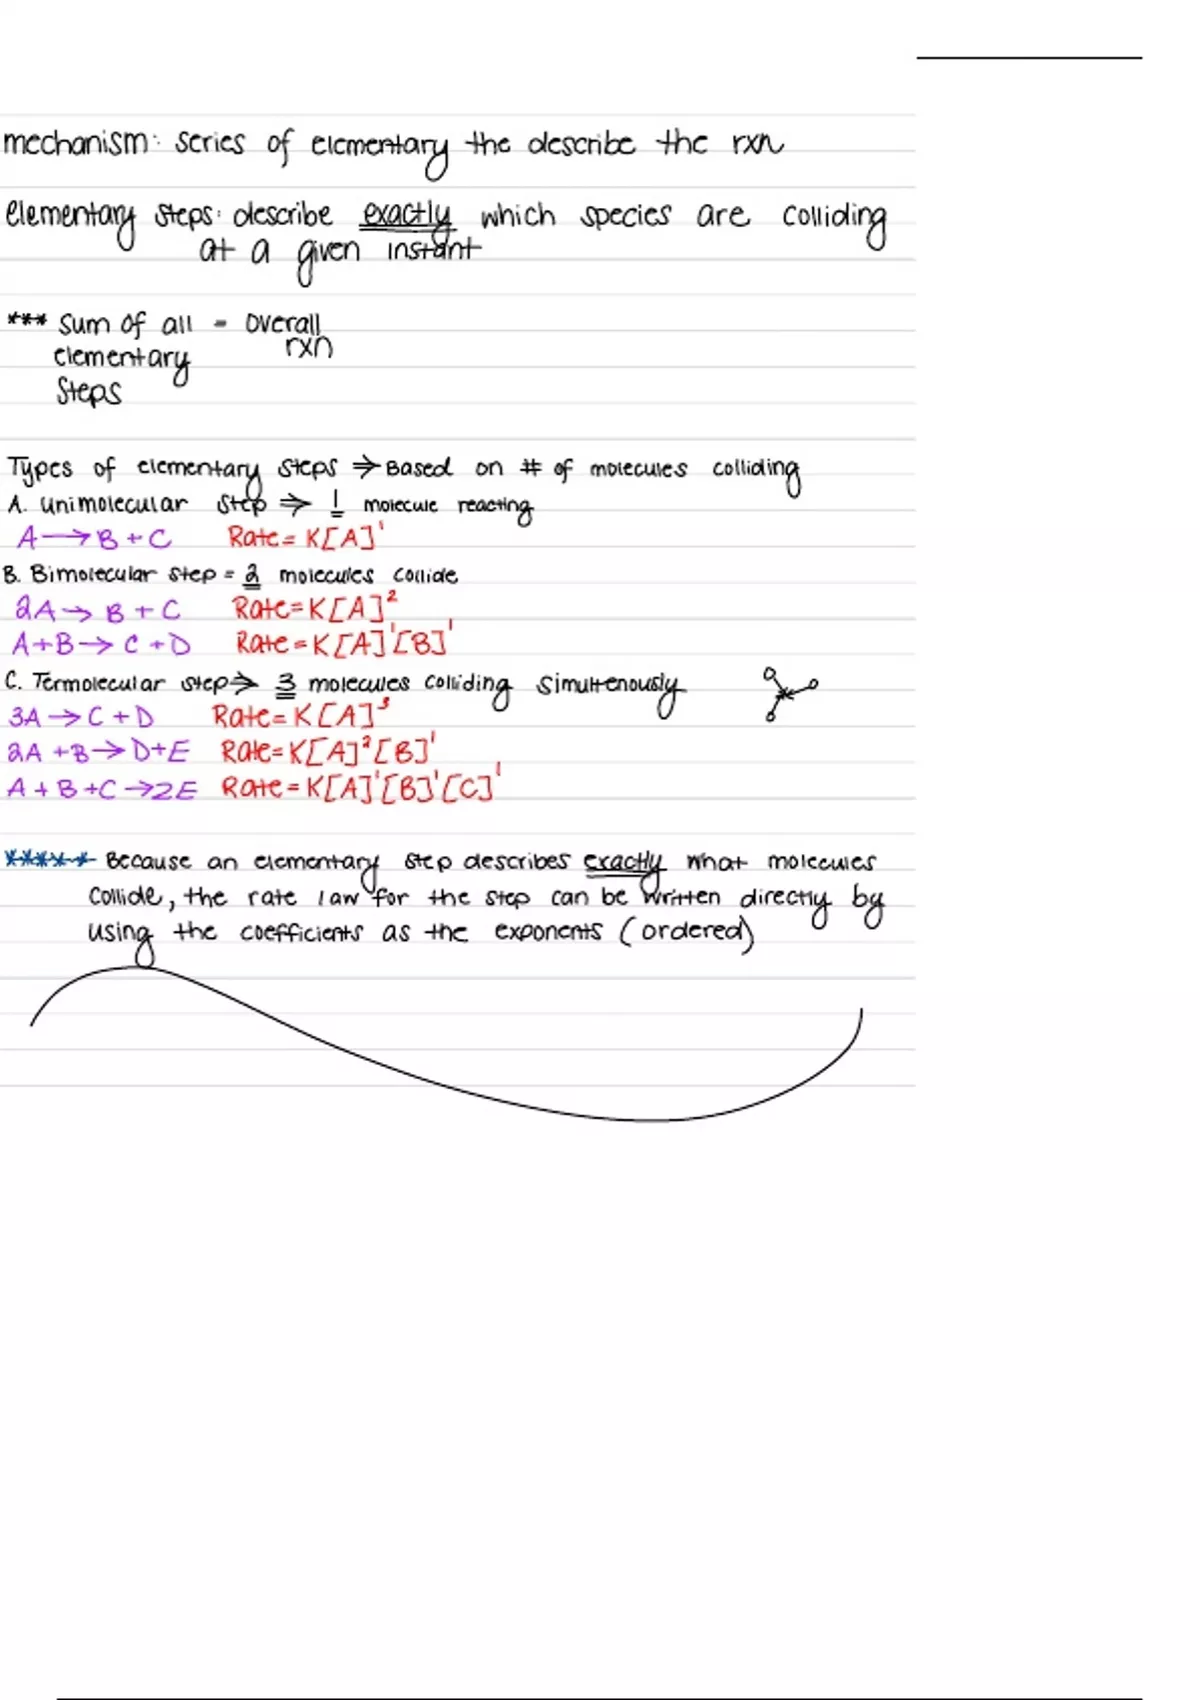 mechanism: series of elementary the describe the rxn
elementary steps: describe exactly which species are colliding
at a given instant
*** Sum of all = overall
elementary rxn
steps
Types of elementary steps ⇒ Based on # of molecules colliding
A. unimolecular step ⇒ 1 molecule reacting
A → B + C Rate = K[A]¹
B. Bimolecular step = 2 molecules collide
2A → B + C Rate = K[A]²
A + B → C + D Rate = K[A]¹[B]¹
C. Termolecular step ⇒ 3 molecules colliding simultenously
3A → C + D Rate = K[A]³
2A + B → D + E Rate = K[A]²[B]¹
A + B + C → 2E Rate = K[A]¹[B]¹[C]¹
***** Because an elementary step describes exactly what molecules
collide, the rate law for the step can be written directly by
using the coefficients as the exponents (ordered)